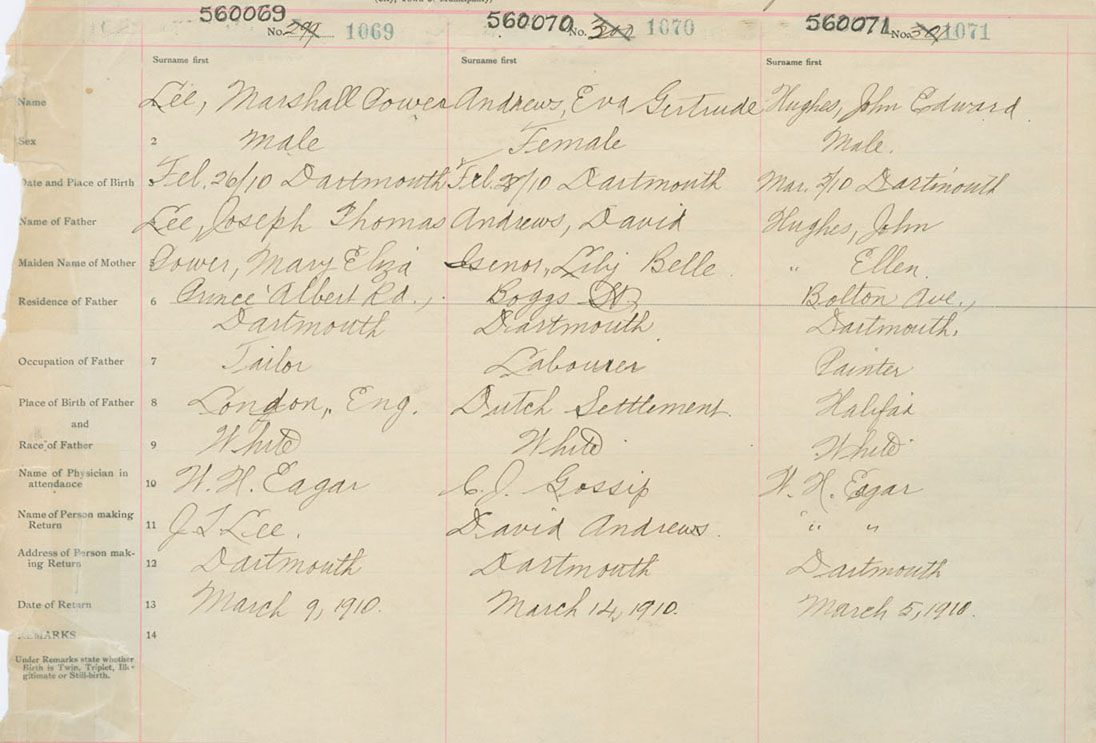 560069 560070 560071
No. 299 1069 No. 300 1070 No. 301 1071
Surname first Surname first Surname first
Name Lee, Marshall Power Andrews, Eva Gertrude Hughes, John Edward
Sex 2 Male Female Male.
Date and Place of Birth 3 Feb. 26/10 Dartmouth Feb. 28/10 Dartmouth Mar. 2/10 Dartmouth
Name of Father Lee, Joseph Thomas Andrews, David Hughes, John
Maiden Name of Mother Power, Mary Eliza Isenor, Lily Belle. " Ellen.
Residence of Father 6 Prince Albert Rd., Boggs St. Bolton Ave.,
Dartmouth Dartmouth Dartmouth.
Occupation of Father 7 Tailor Labourer Painter
Place of Birth of Father 8 London, Eng. Dutch Settlement. Halifax
and
Race of Father 9 White White White
Name of Physician in
attendance 10 W. H. Eagar C. J. Gossip W. H. Eagar
Name of Person making
Return 11 J T Lee. David Andrews. " "
Address of Person mak-
ing Return 12 Dartmouth Dartmouth Dartmouth
Date of Return 13 March 9, 1910. March 14, 1910. March 5, 1910.
REMARKS 14
Under Remarks state whether
Birth is Twin, Triplet, Ille-
gitimate or Still-birth.